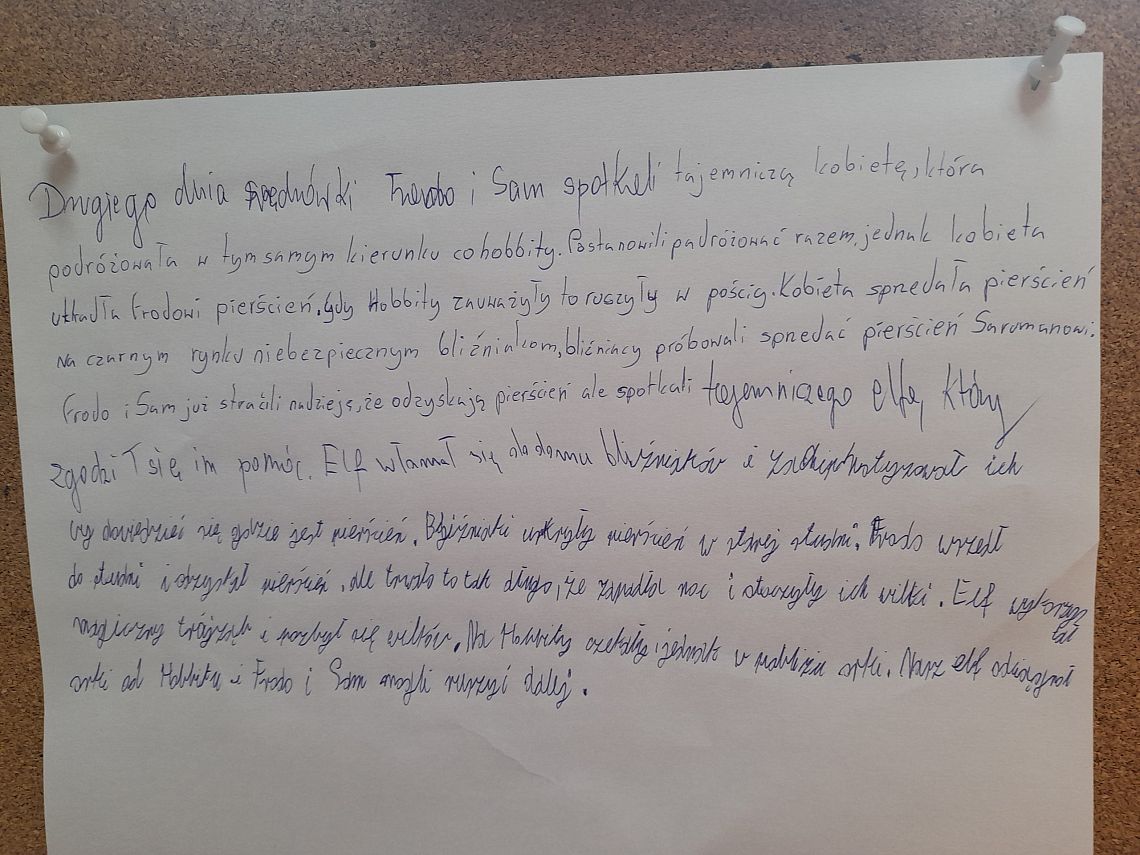 Drugiego dnia wędrówki Frodo i Sam spotkali tajemniczą kobietę, która
podróżowała w tym samym kierunku co hobbity. Postanowili podróżować razem, jednak kobieta
ukradła Frodowi pierścień. Gdy Hobbity zauważyły to ruszyły w pościg. Kobieta sprzedała pierścień
na czarnym rynku niebezpiecznym bliźniakom, bliźniacy próbowali sprzedać pierścień Sarumanowi.
Frodo i Sam już stracili nadzieję, że odzyskają pierścień ale spotkali tajemniczego elfa, który
zgodził się im pomóc. Elf włamał się do domu bliźniaków i zahipnotyzował ich
by dowiedzieć się gdzie jest pierścień. Bliźniaki ukryły pierścień w starej studni. Frodo wszedł
do studni i odzyskał pierścień, ale trwało to tak długo, że zapadła noc i otoczyły ich wilki. Elf wykorzys
tał
magiczny trójząb i pozbył się wilków. Na Hobbity czekały jednak w pobliżu orki. Nasz elf odciągnął
orki od Hobbitów i Frodo i Sam mogli ruszyć dalej.